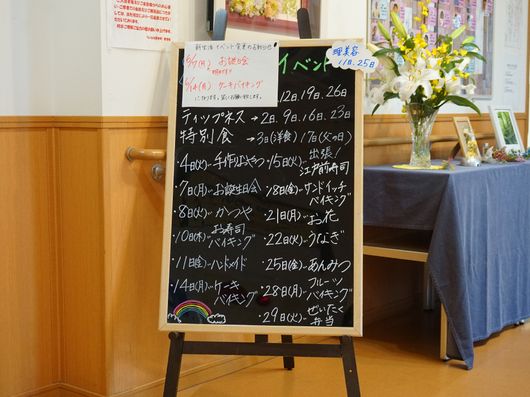 新生活イベント変更のお知らせ
6/7(月) お誕生会
6/14(月) ケーキバイキング
になります。宜しくお願い致します。
イベント
理美容
11日.25日
12日.19日.26日
ティップネス→2日.9日.16日.23日
特別食→3日(洋食) 17日(父の日)
・4日(火)…手作りおやつ
・7日(月)…お誕生日会
・8日(火)…かつや
・10日(木)…お寿司バイキング
・11日(金)…ハンドメイド
・14日(月)…ケーキ
バイキング
・15日(火)…出張!
江戸前寿司
・18日(金)…サンドイッチ
バイキング
・21日(月)…お花
・22日(火)…うなぎ
・25日(金)…あんみつ
・28日(月)…フルーツ
バイキング
・29日(火)…ぜいたく
弁当